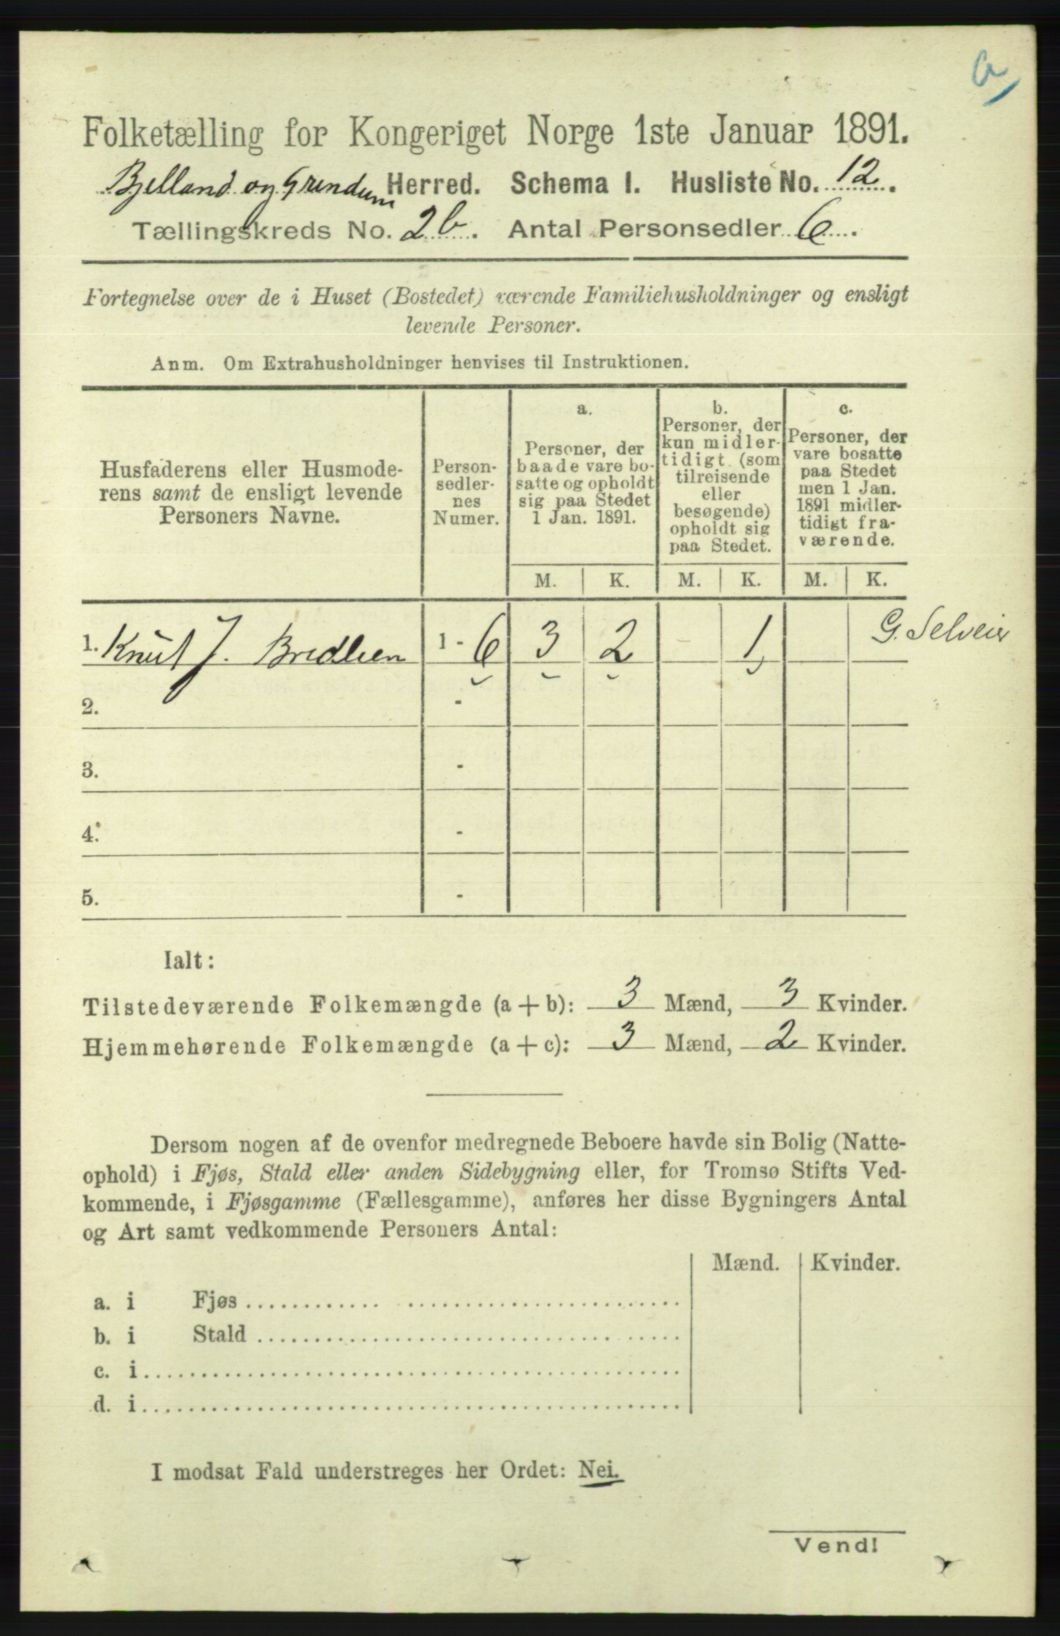 a
Folketælling for Kongeriget Norge 1ste Januar 1891.
Bjelland og Grendum Herred. Schema I. Husliste No. 12.
Tællingskreds No. 2b. Antal Personsedler 6.
Fortegnelse over de i Huset (Bostedet) værende Familiehusholdninger og ensligt
levende Personer.
Anm. Om Extrahusholdninger henvises til Instruktionen.
Husfaderens eller Husmode-
rens samt de ensligt levende
Personers Navne.
Person-
sedler-
nes
Numer.
a.
Personer, der
baade vare bo-
satte og opholdt
sig paa Stedet
1 Jan. 1891.
b.
Personer, der
kun midler-
tidigt (som
tilreisende
eller
besøgende)
opholdt sig
paa Stedet.
c.
Personer, der
vare bosatte
paa Stedet
men 1 Jan.
1891 midler-
tidigt fra-
værende.
M. K. M. K. M. K.
1. Knut J. Bredlien 1 - 6 3 2 - 1 G. Selveier
2. -
3. -
4. -
5. -
Ialt:
Tilstedeværende Folkemængde (a + b): 3 Mænd, 3 Kvinder.
Hjemmehørende Folkemængde (a + c): 3 Mænd, 2 Kvinder.
Dersom nogen af de ovenfor medregnede Beboere havde sin Bolig (Natte-
ophold) i Fjøs, Stald eller anden Sidebygning eller, for Tromsø Stifts Ved-
kommende, i Fjøsgamme (Fællesgamme), anføres her disse Bygningers Antal
og Art samt vedkommende Personers Antal:
Mænd. Kvinder.
a. i Fjøs
b. i Stald
c. i
d. i
I modsat Fald understreges her Ordet: Nei.
Vend!